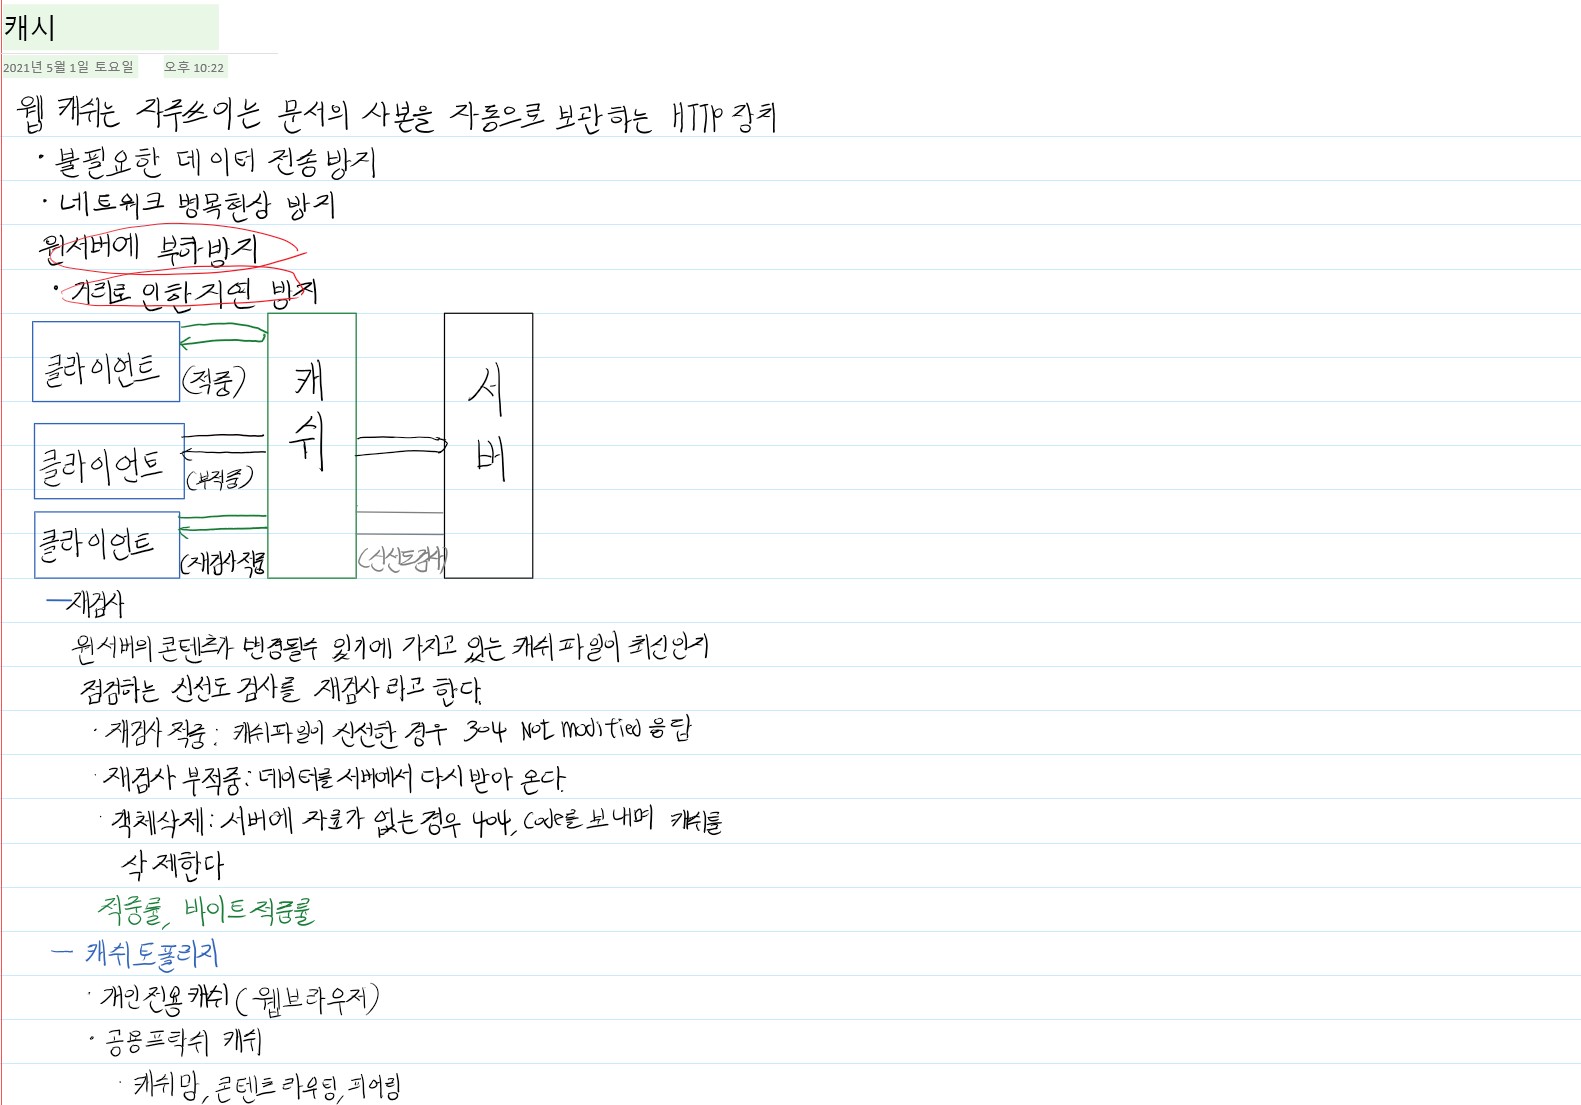 캐시
2021년 5월 1일 토요일 오후 10:22
웹 캐쉬는 자루쓰이는 문서의 사본을 자동으로 보관하는 HTTP 장치
· 불필요한 데이터 전송방지
· 네트워크 병목현상 방지
원서버에 부하방지
· 거리로 인한 지연 방지
클라이언트
(적중)
캐쉬
서버
클라이언트
(부적중)
클라이언트
(재검사적중
(신선도검사)
—재검사
원서버의 콘텐츠가 변경될수 있기에 가지고 있는 캐쉬파일이 최신인지
점검하는 신선도 검사를 재검사 라고 한다.
· 재검사 적중 : 캐쉬파일이 신선한 경우 304 Not modified 응답
· 재검사 부적중 : 데이터를 서버에서 다시 받아 온다.
· 객체삭제 : 서버에 자료가 없는 경우 404, Code를 보내며 캐쉬를
삭제한다
적중률, 바이트적중률
— 캐쉬토폴리지
· 개인전용 캐쉬 (웹브라우저)
· 공용프락쉬 캐쉬
· 캐쉬망, 콘텐트라우팅, 피어링